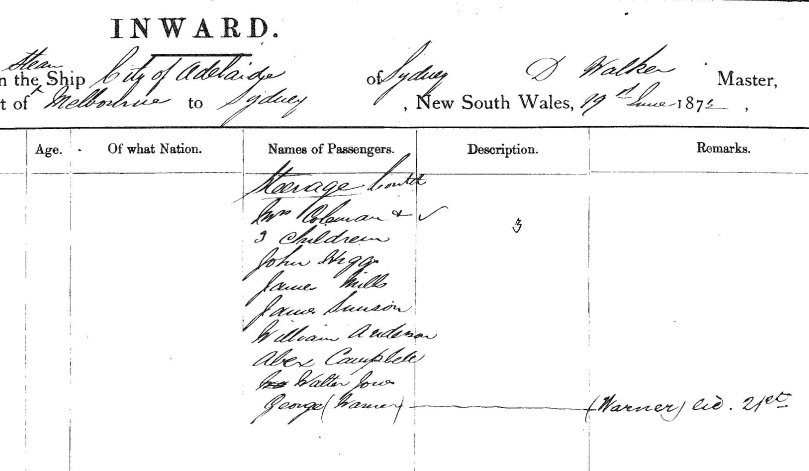 INWARD.
Steam
n the Ship City of Adelaide of Sydney D Walker Master,
t of Melbourne to Sydney, New South Wales, 19th June 187
Age. Of what Nation. Names of Passengers. Description. Remarks.
Steerage Contd
Mrs Coleman & ✓ 3
3 Children
John Higgs
James Mills
James Simson
William Anderson
Alex Campbell
Walter Jones
George (Warner) (Warner) 21st